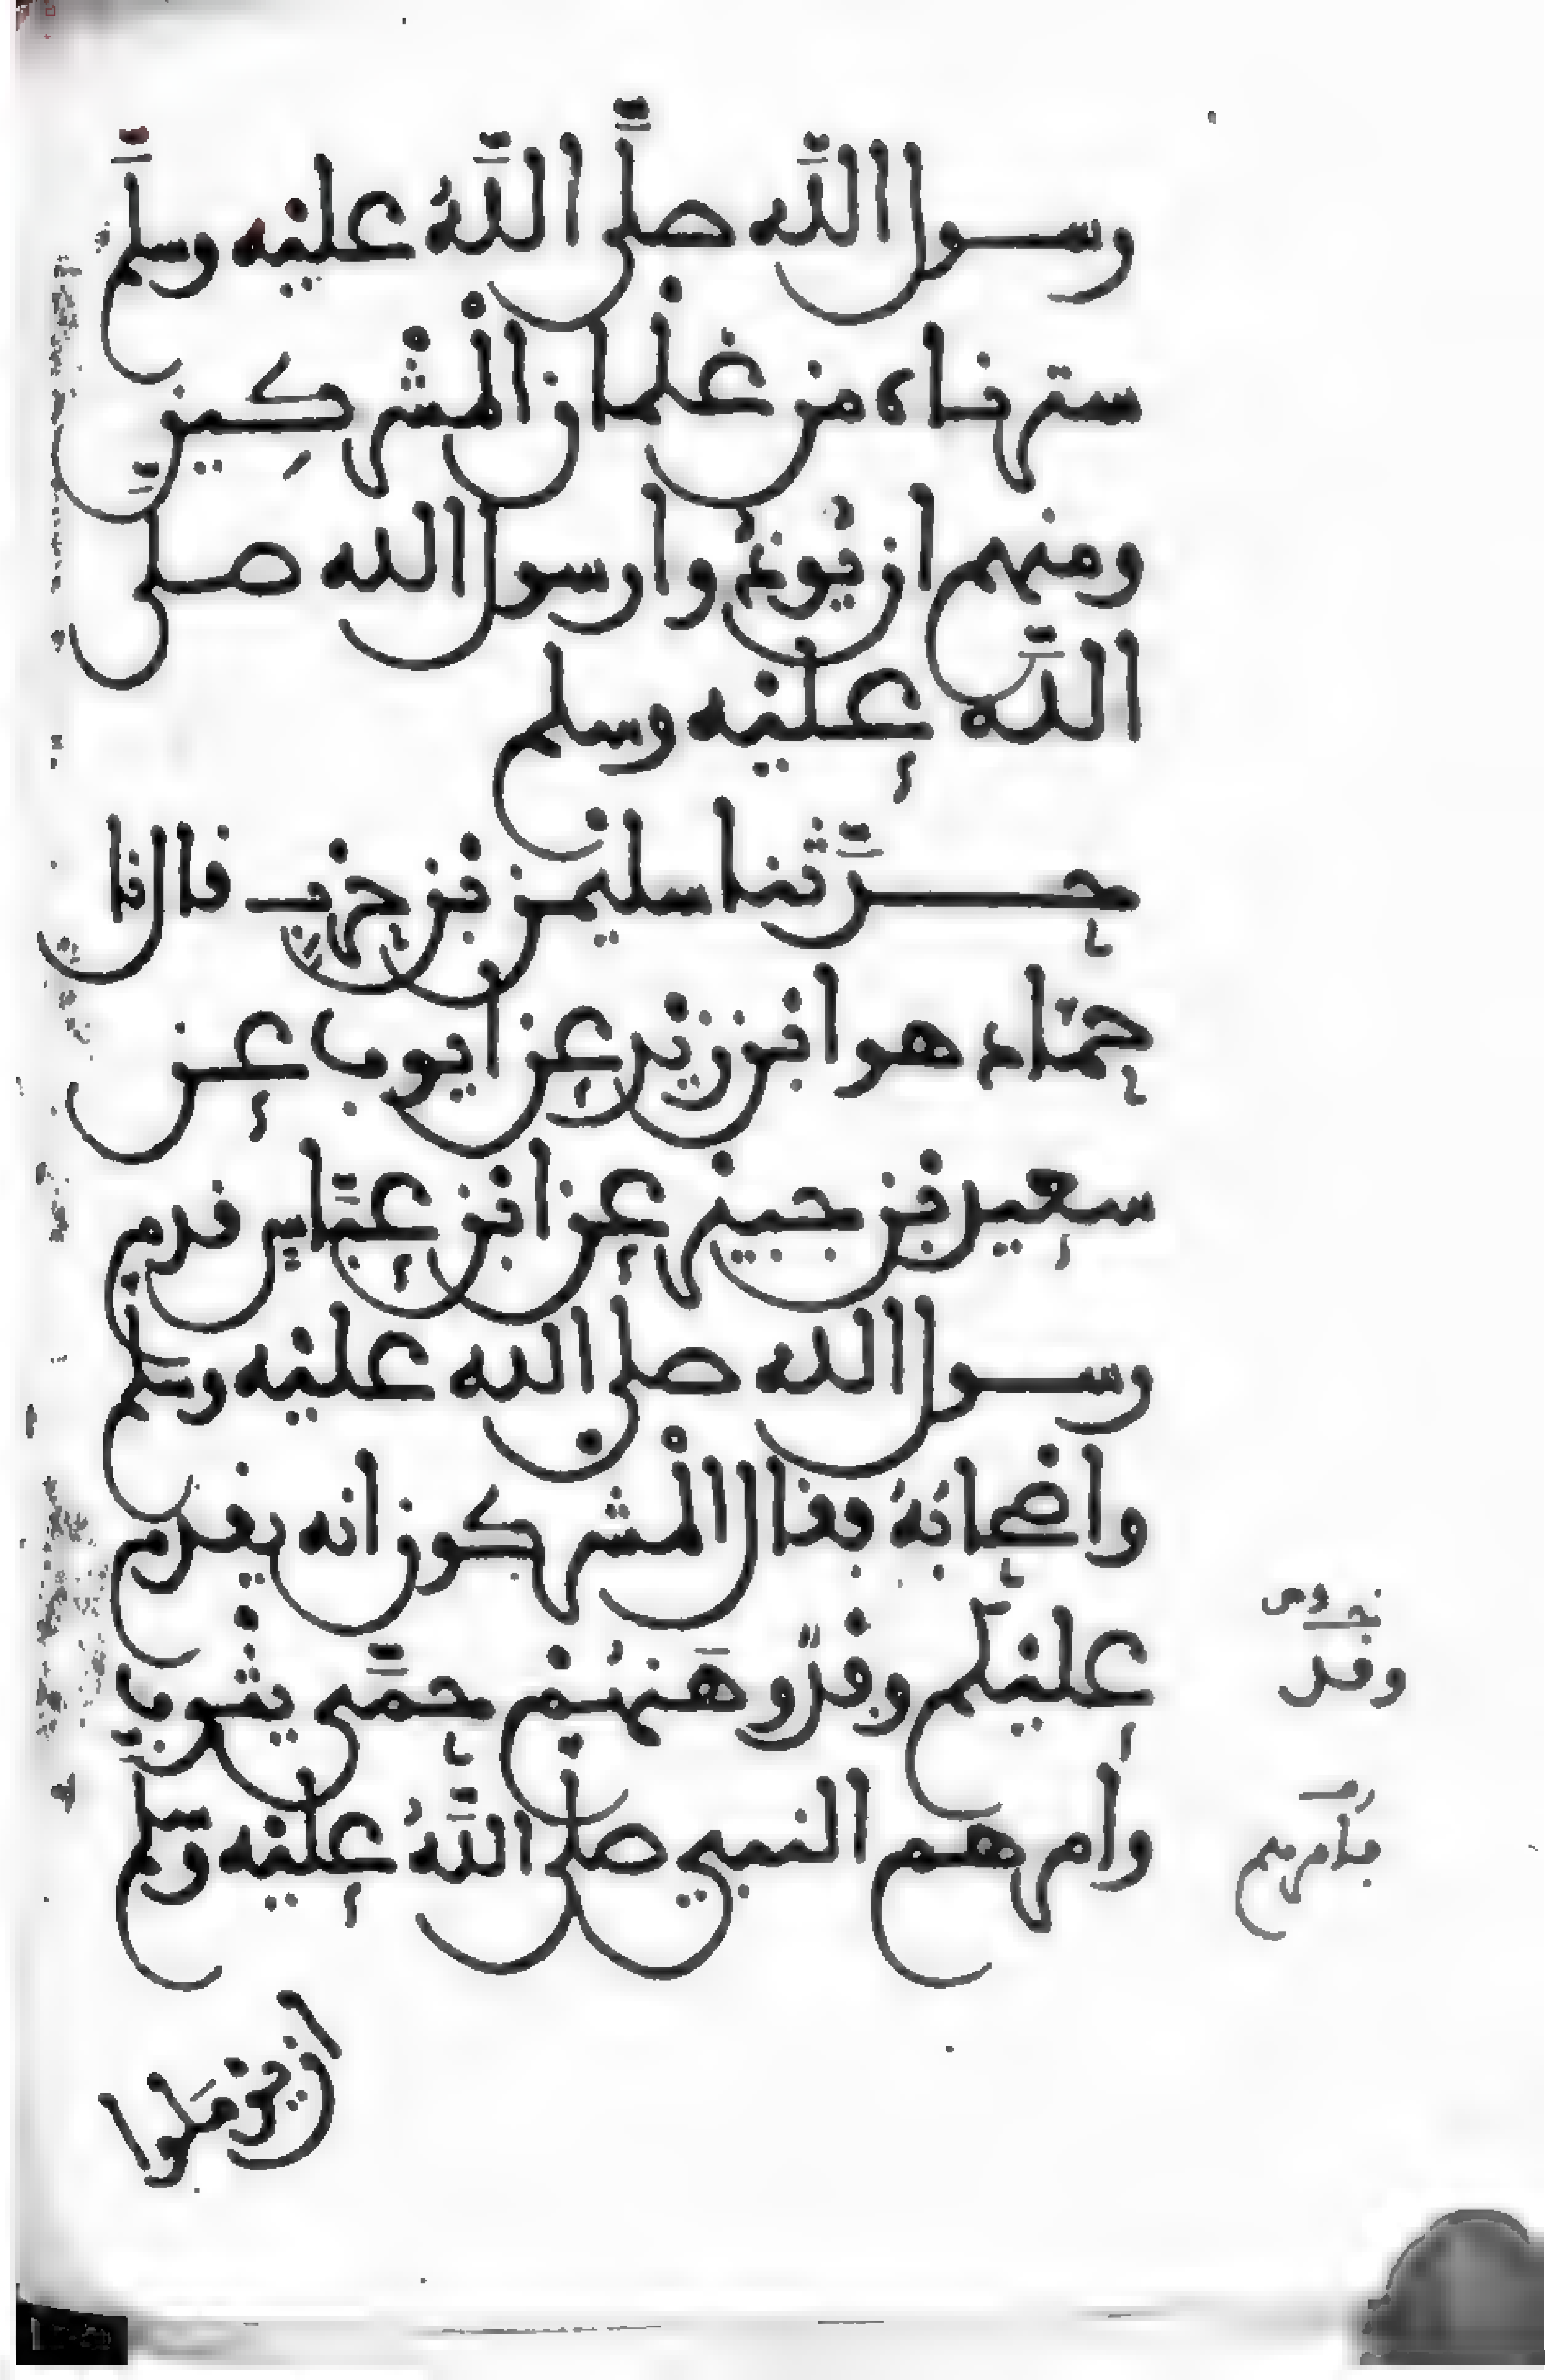 رسول اللَّه صلَّى اللَّهُ عليْه وسلَّم
سترناه من غلْمان الْمشْركِين
ومنهم ان يُوذُوا رسول الله صلَّى
اللَّه عليْه وسلم
حدَّثنا سليمٰن بْن حرْبٍ قال نا
حمّاد هو ابْن زيْد عن ايوب عن
سعيد بْن جبيْر عن ابْن عبَّاسٍ قدم
رسول الله صلى الله عليْه وسلم
واصْحابُهُ فقال الْمشركون انه يقدم
عليْكم وفْدٌ وهَنهُمْ حمَّى يثْرب
وامرهم النبي صلى اللَّهُ عليْه وسلم
ان يرْمَلوا
وقد
فامرهم